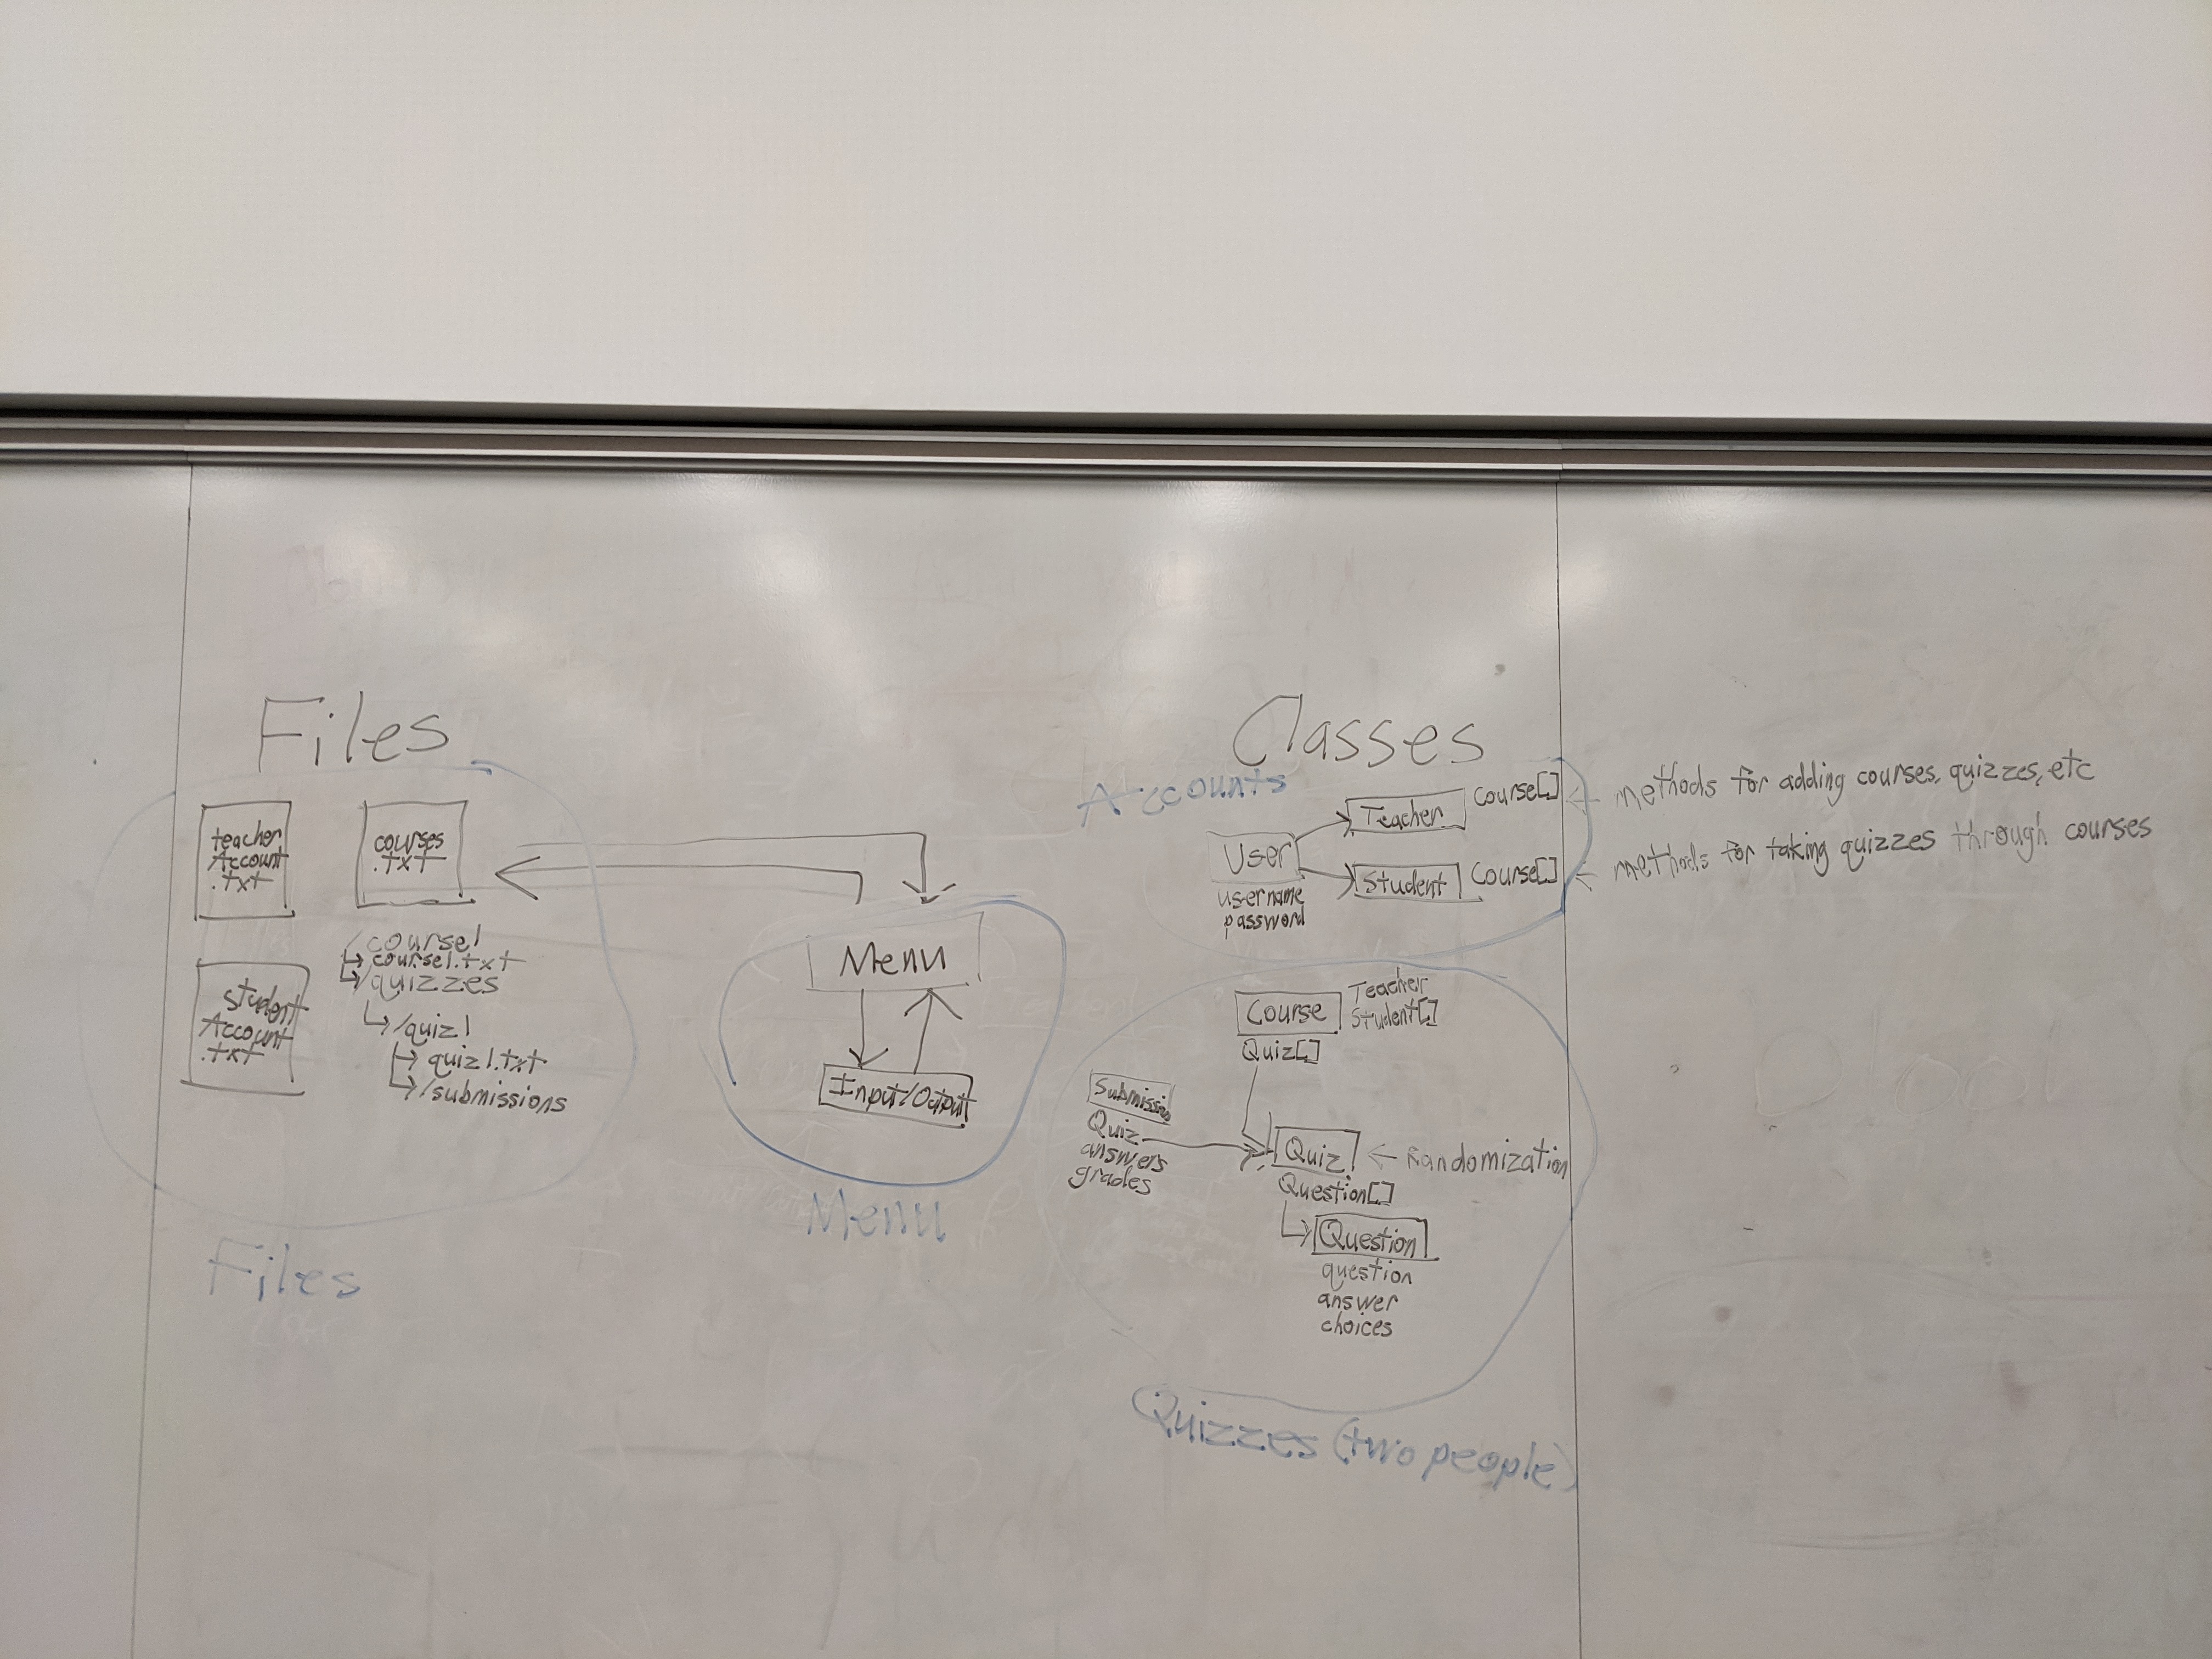 Files
teacher
Account
.txt
courses
.txt
/course1
course1.txt
/quizzes
/quiz1
quiz1.txt
/submissions
student
Account
.txt
Files
Menu
Input/Output
Menu
Classes
Accounts
User
username
password
Teacher
Course[]
methods for adding courses, quizzes, etc
Student
Course[]
methods for taking quizzes through courses
Course
Teacher
Student[]
Quiz[]
Submission
Quiz
answers
grades
Quiz
Randomization
Question[]
Question
question
answer
choices
Quizzes (two people)